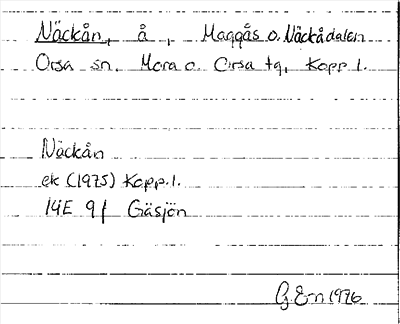 Näckån, å, Maggås o. Näckådalen
Orsa sn, Mora o. Orsa tg, Kopp. l.
Näckån
ek (1975) Kopp. l.
14E 9f Gäsjön
G.E-n 1976